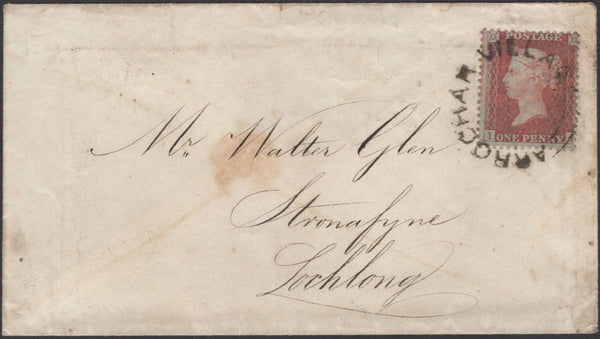 POSTAGE
ONE PENNY
ARROCHAR VILLAGE
Mr. Walter Glen
Stronafyne
Lochlong